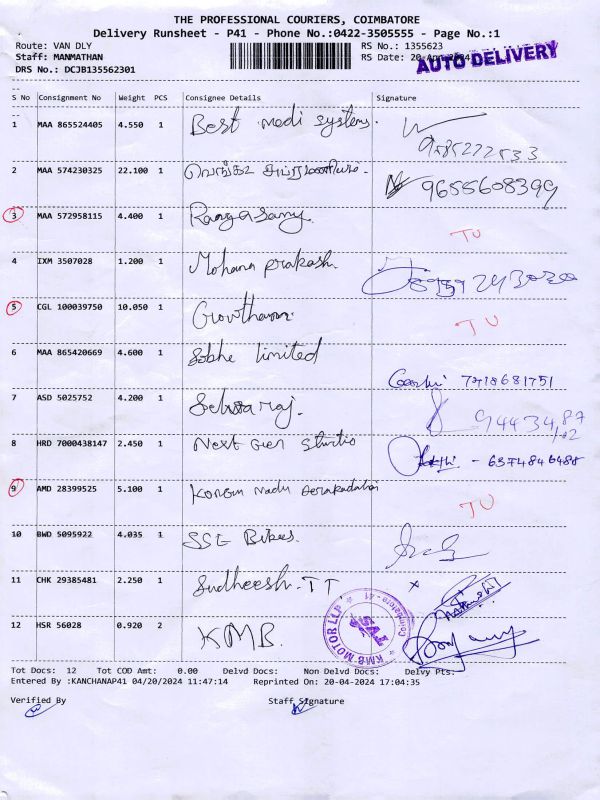 THE PROFESSIONAL COURIERS, COIMBATORE
Delivery Runsheet - P41 - Phone No.:0422-3505555 - Page No.:1
Route: VAN DLY RS No.: 1355623
Staff: MANMATHAN RS Date: 20-Apr-2024
AUTO DELIVERY
DRS No.: DCJB135562301
S No Consignment No Weight PCS Consignee Details Signature
1 MAA 865524405 4.550 1 Best medi systems.
2 MAA 574230325 22.100 1 9655608399
3 MAA 572958115 4.400 1 Rangasamy TU
4 IXM 3507028 1.200 1 Mohana prakash.
5 CGL 100039750 10.050 1 Gowtham TU
6 MAA 865420669 4.600 1 limited
7718681751
7 ASD 5025752 4.200 1 Selvaraj. 94434
8 HRD 7000438147 2.450 1 Next Gen Studio
9 AMD 28399525 5.100 1 Kongu Nadu TU
10 BWD 5095922 4.035 1 SSE Bikes.
11 CHK 29385481 2.250 1 Sudheesh. TT x
12 HSR 56028 0.920 2 KMB.
KMB MOTOR LLP. Coimbatore - 41 TVS
Tot Docs: 12 Tot COD Amt: 0.00 Delvd Docs: Non Delvd Docs: Delvy Pts:
Entered By :KANCHANAP41 04/20/2024 11:47:14 Reprinted On: 20-04-2024 17:04:35
Verified By Staff Signature